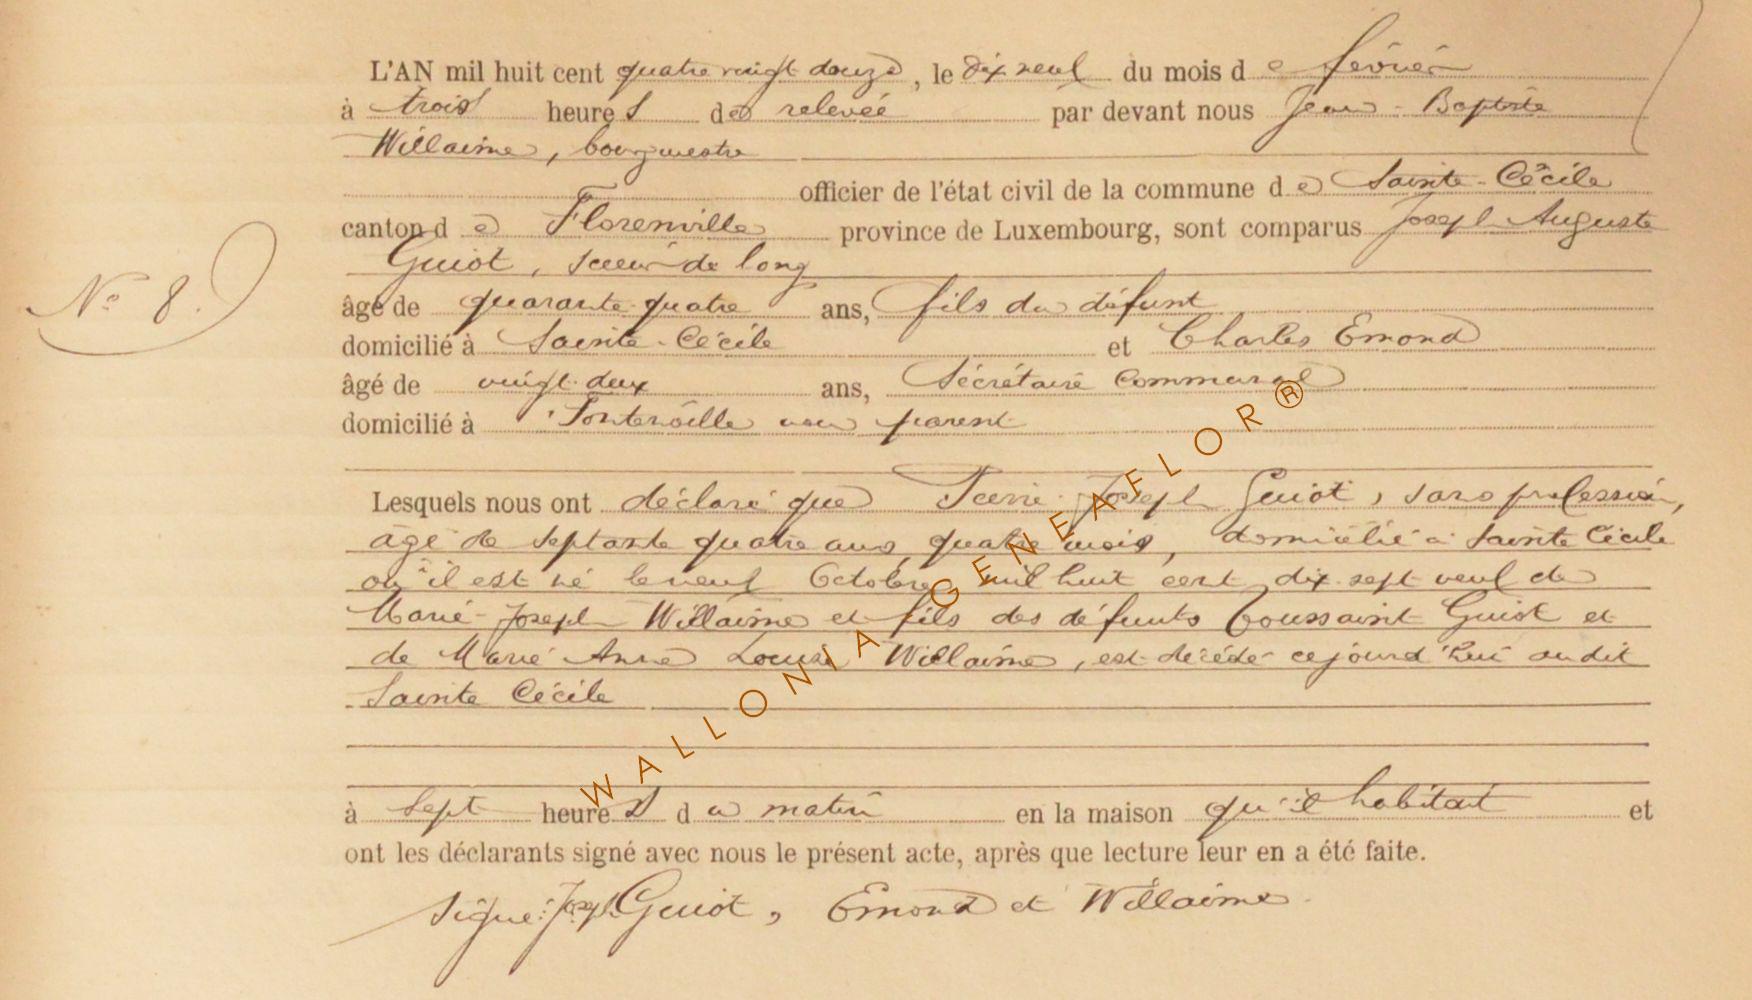 L'AN mil huit cent quatre vingt douze, le dix neuf du mois de février
à trois heures de relevée par devant nous Jean-Baptiste
Willaime, bourgmestre
officier de l'état civil de la commune de Sainte-Cécile
canton de Florenville province de Luxembourg, sont comparus Joseph Auguste
Guiot, scieur de long
N° 8.
âgé de quarante quatre ans, fils du défunt
domicilié à Sainte-Cécile et Charles Emond
âgé de vingt deux ans, Sécrétaire communal
domicilié à Fontenoille non parent
Lesquels nous ont déclaré que Pierre-Joseph Guiot, sans profession,
âgé de septante quatre ans, quatre mois, domicilié à Sainte Cécile
où il est né le neuf Octobre mil huit cent dix sept veuf de
Marie-Joseph Willaime et fils des défunts Toussaint Guiot et
de Marie Anne Louise Willaime, est décédé cejourd'hui audit
Sainte Cécile
à sept heures du matin en la maison qu'il habitait et
ont les déclarants signé avec nous le présent acte, après que lecture leur en a été faite.
Signé: Joseph Guiot, Emond et Willaime
WALLONIA GENEAFLOR®